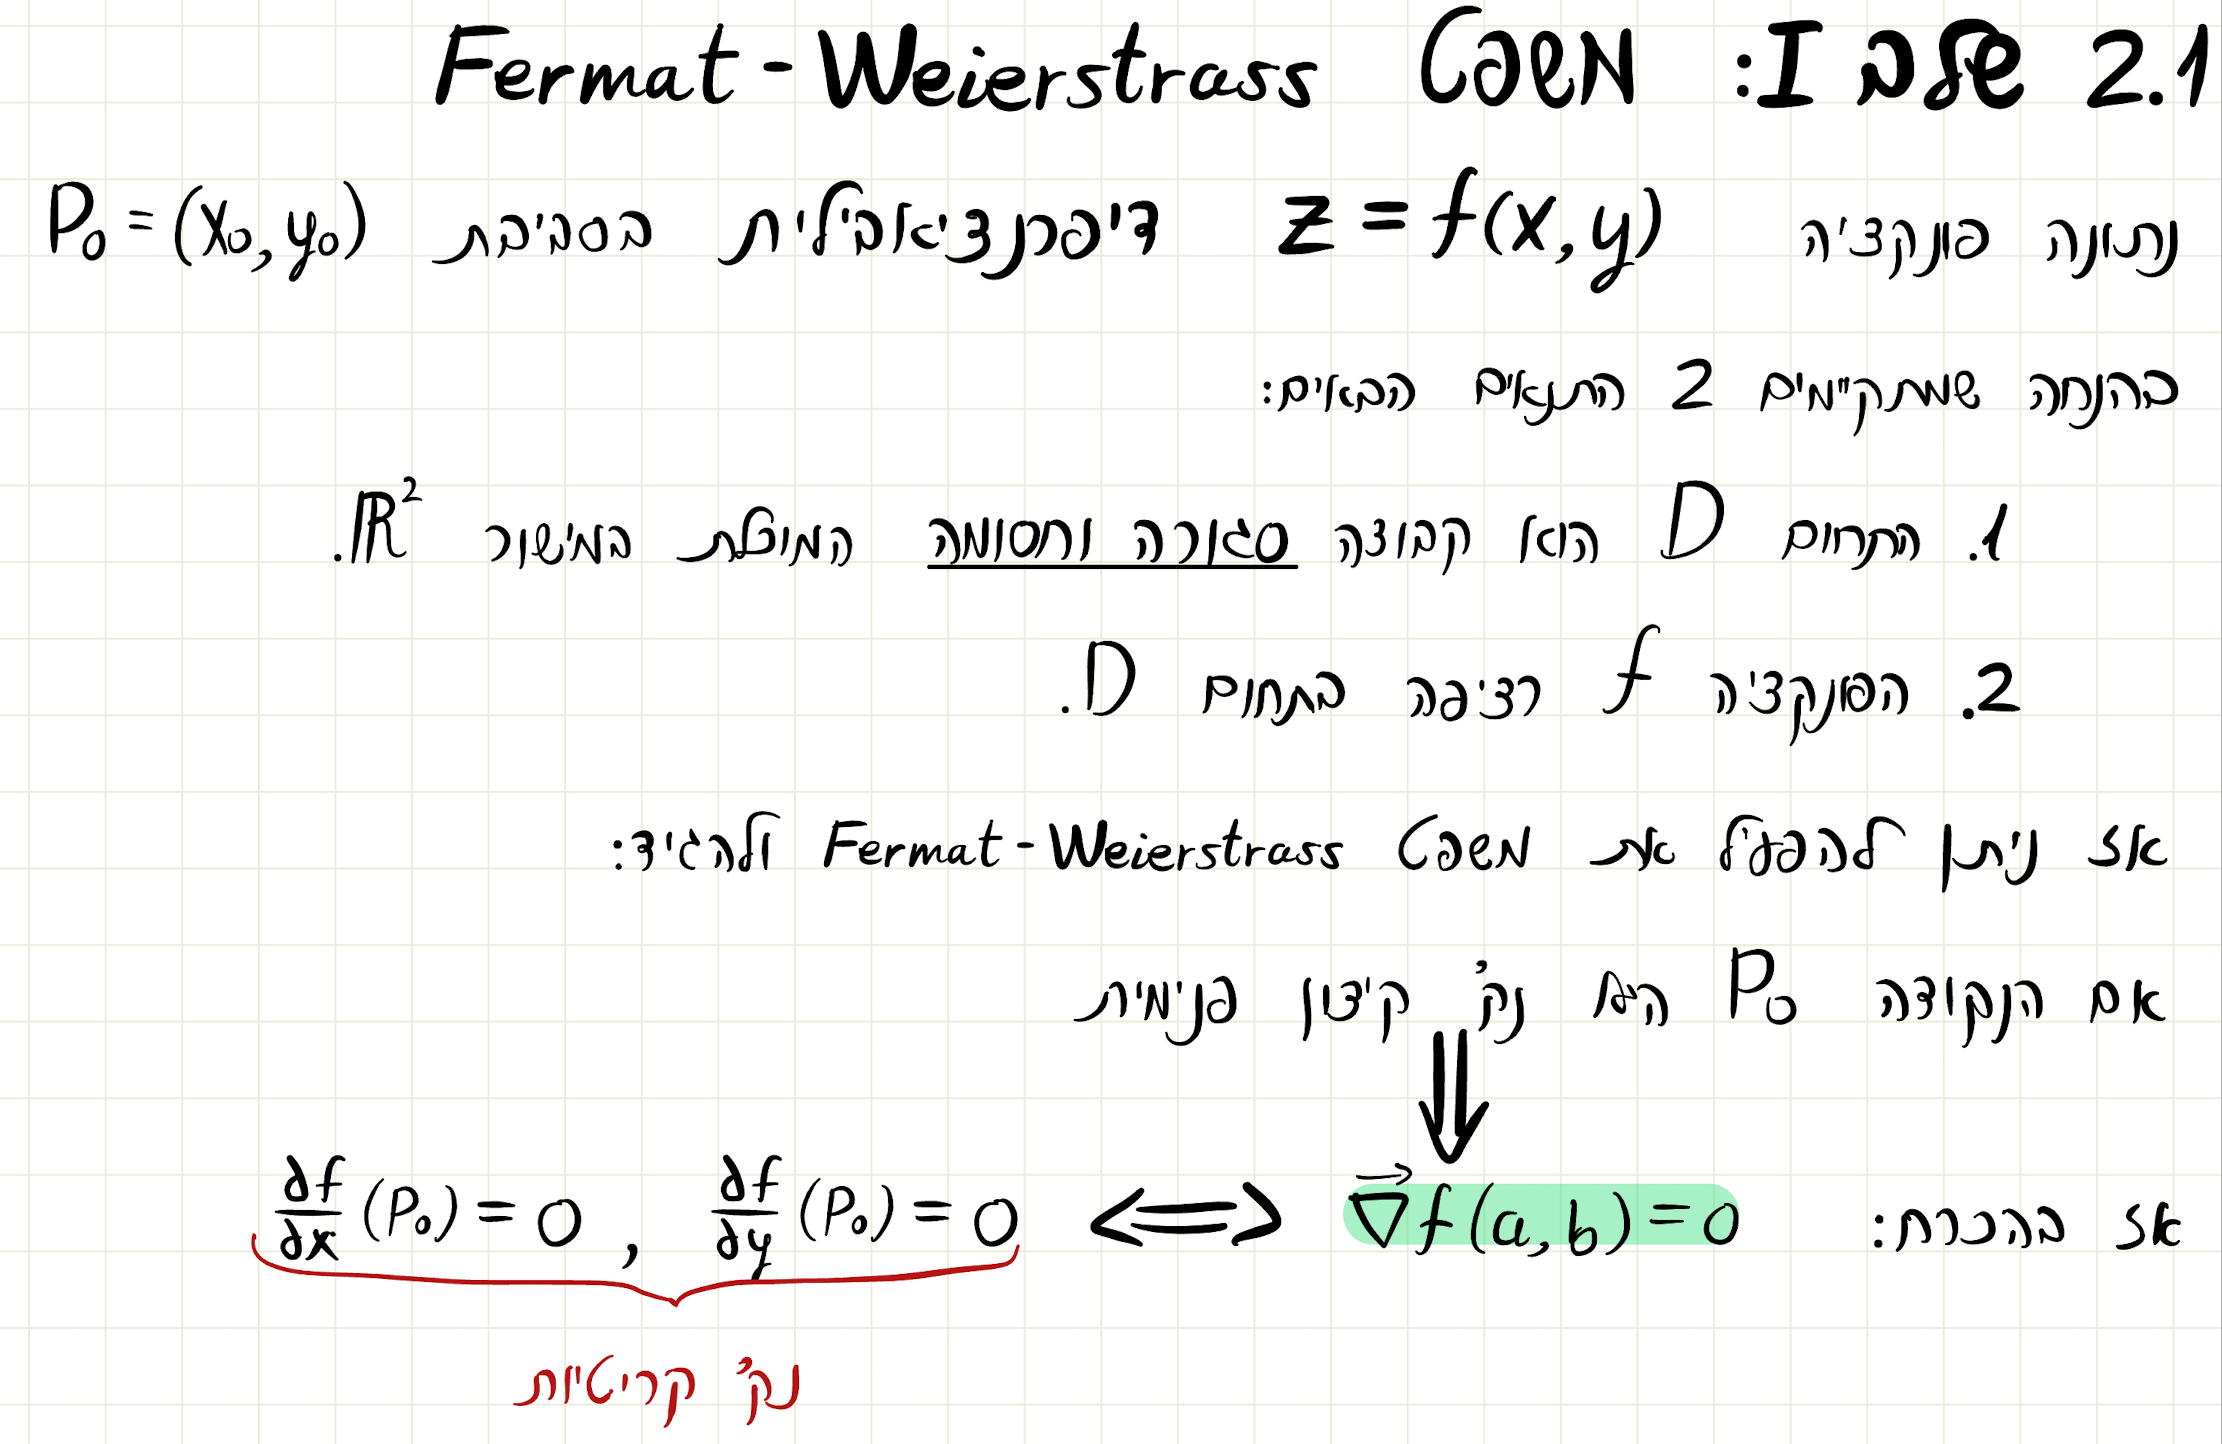 2.1 שלב I: משפט Fermat-Weierstrass
נתונה פונקציה z = f(x,y) דיפרנציאבילית בסביבת P₀ = (x₀, y₀)
בהנחה שמתקיימים 2 התנאים הבאים:
1. התחום D הוא קבוצה סגורה וחסומה המוכלת במישור ℝ².
2. הפונקציה f רציפה בתחום D.
אז ניתן להפעיל את משפט Fermat-Weierstrass ולהגיד:
אם הנקודה P₀ היא נק' קיצון פנימית
⇓
אז בהכרח: ∇⃗f(a,b) = 0 ⟺ ∂f/∂x (P₀) = 0 , ∂f/∂y (P₀) = 0
נק' קריטיות